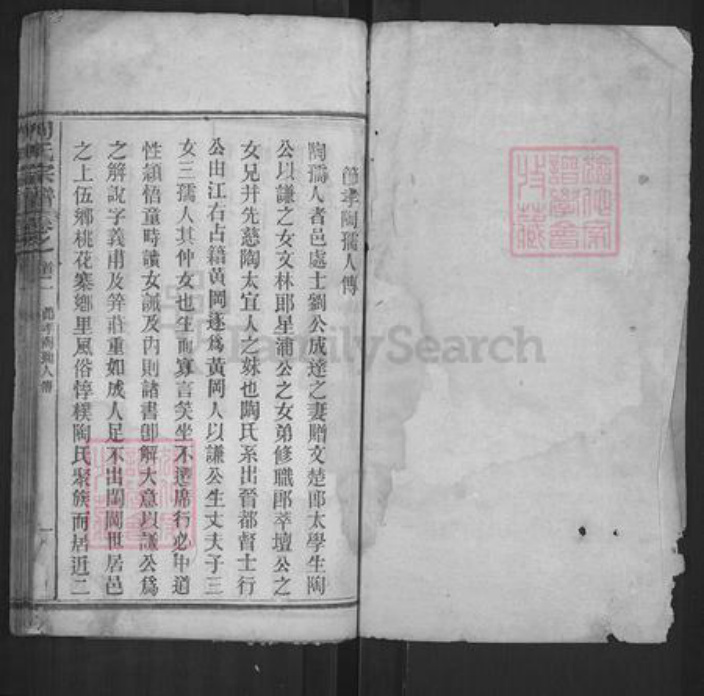 節孝陶孺人傳
陶孺人者邑處士劉公成達之妻贈文楚郎太學生陶
公以謙之女文林郎星浦公之女弟修職郎萃壇公之
女兄幷先慈陶太宜人之妹也陶氏系出晉都督士行
公由江右占籍黃岡遂爲黃岡人以謙公生丈夫子三
女三孺人其仲女也生而寡言笑坐不遷席行必中道
性穎悟童時讀女誡及內則諸書卽解大意以謙公爲
之解說字義甫及笄莊重如成人足不出閫閾世居邑
之上伍鄉桃花寨鄉里風俗惇樸陶氏聚族而居近二
氏宗譜 卷之首一 節孝陶孺人傳 一
FamilySearch